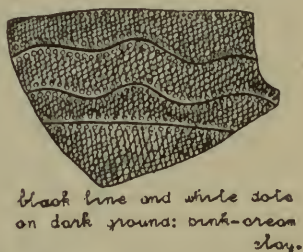 black line and white dots
on dark ground: pink-cream
clay.